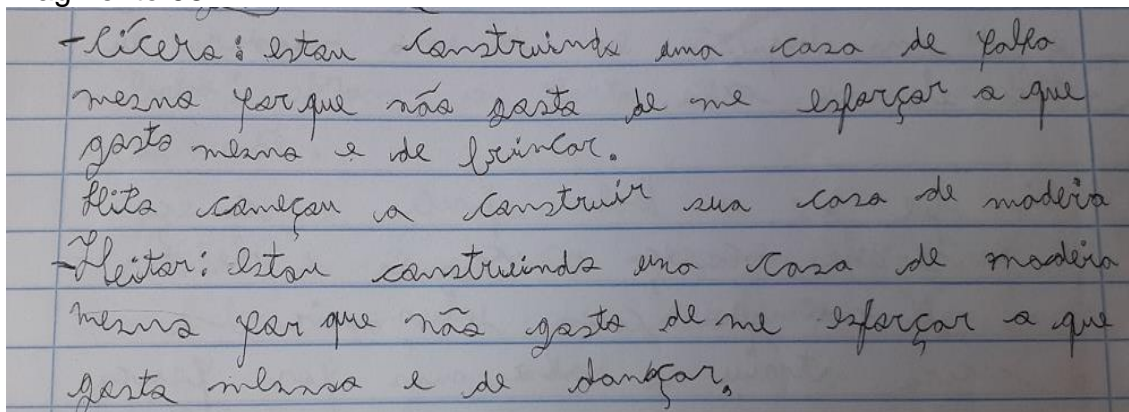 -Cícero: estou construindo uma casa de palha
mesmo por que não gosto de me esforçar o que
gosto mesmo e de brincar.
começou a construir sua casa de madeira
-Heitor: estou construindo uma casa de madeira
mesmo por que não gosto de me esforçar o que
gosto mesmo e de dançar.